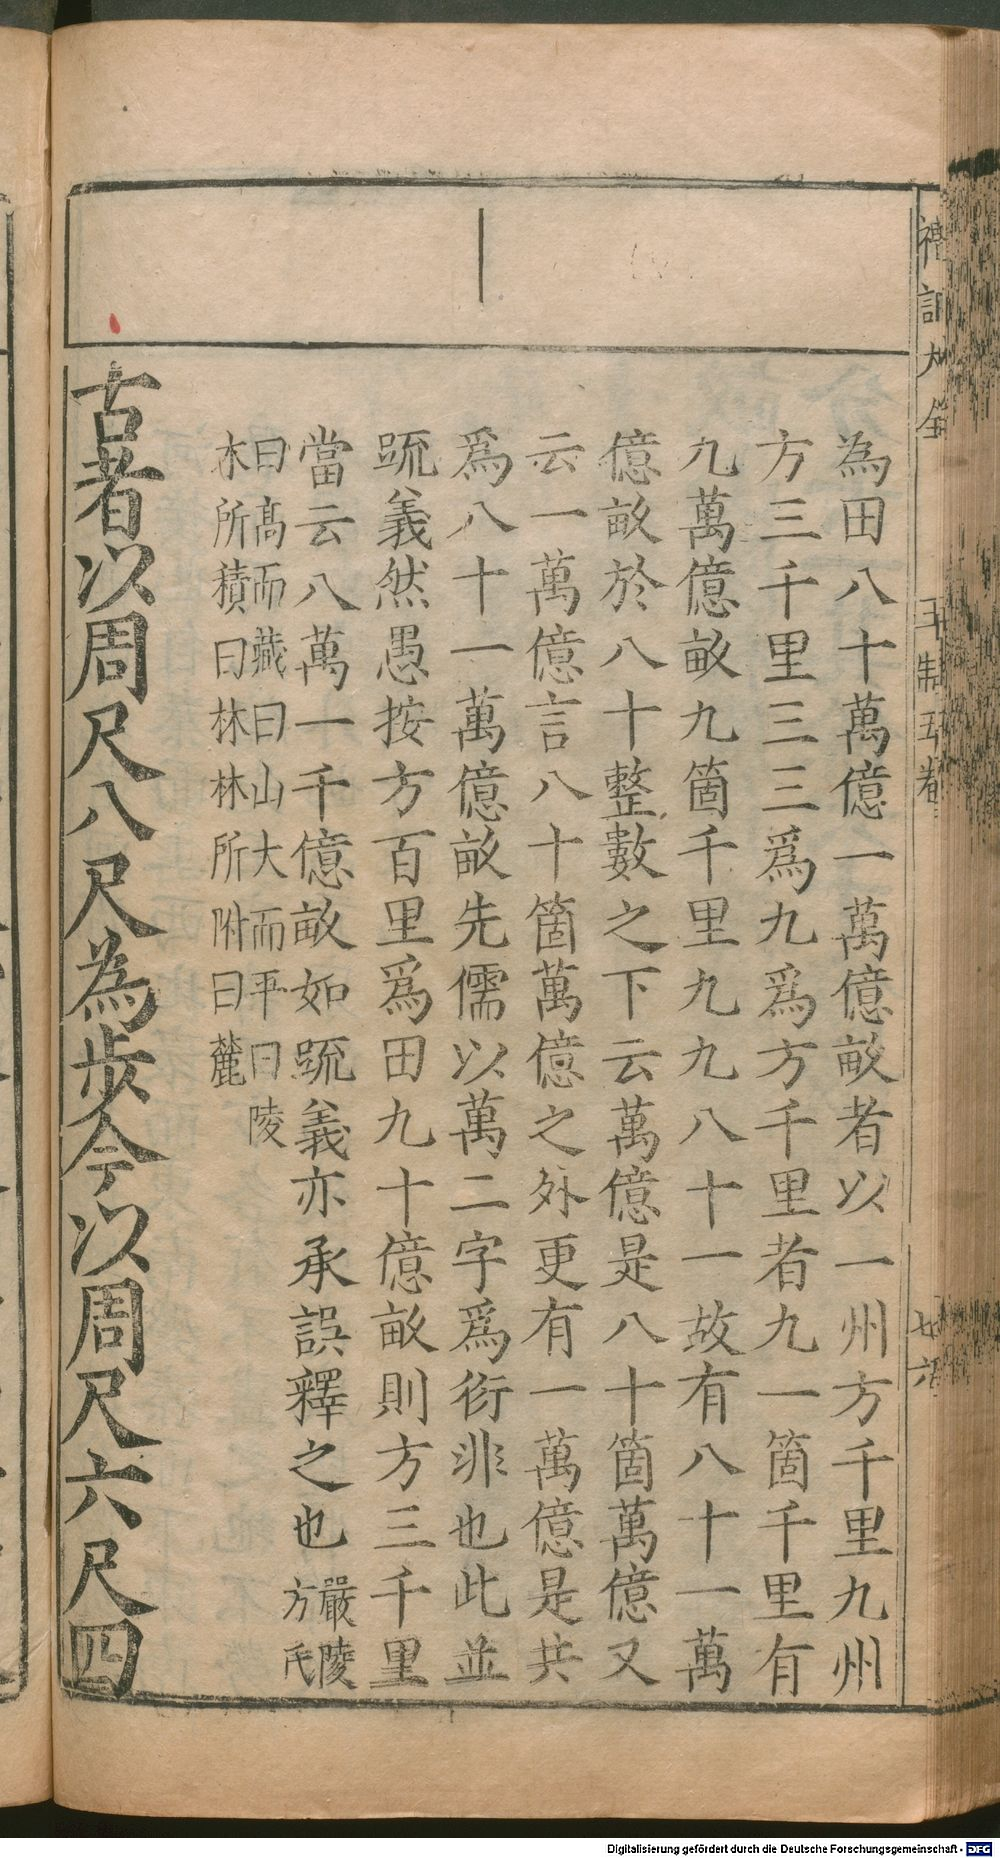 禮記大全 王制五卷 七六
為田八十萬億一萬億畝者以一州方千里九州
方三千里三三爲九爲方千里者九一箇千里有
九萬億畝九箇千里九九八十一故有八十一萬
億畝於八十整數之下云萬億是八十箇萬億又
云一萬億言八十箇萬億之外更有一萬億是共
爲八十一萬億畝先儒以萬二字爲衍非也此並
䟽義然愚按方百里爲田九十億畝則方三千里
當云八萬一千億畝如䟽義亦承誤釋之也嚴陵
方氏
曰髙而藏曰山大而平曰陵
木所積曰林林所附曰麓
古者以周尺八尺為步今以周尺六尺四
Digitalisierung gefördert durch die Deutsche Forschungsgemeinschaft - DFG